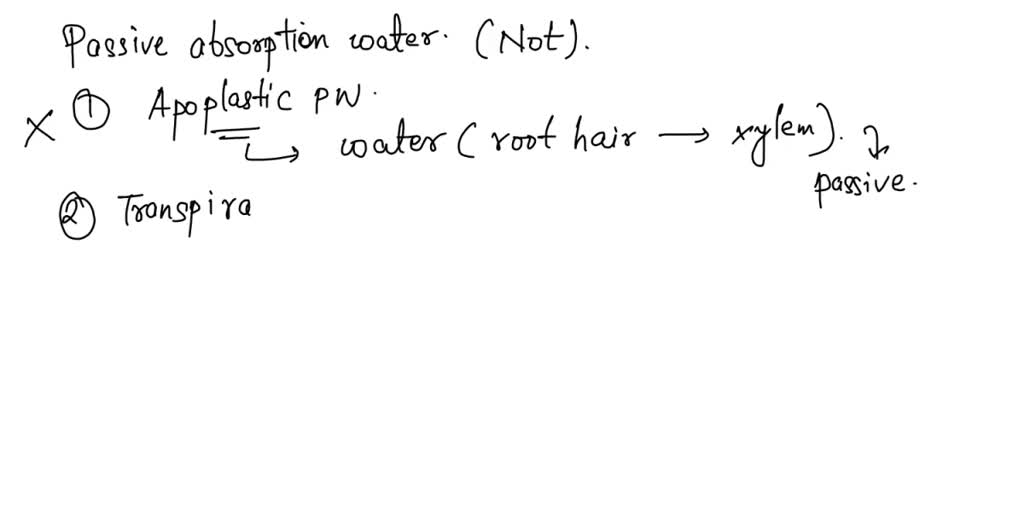 Passive absorption water. (Not).
X ① Apoplastic PW.
↳ water (root hair → xylem). ↓
passive.
② Transpira